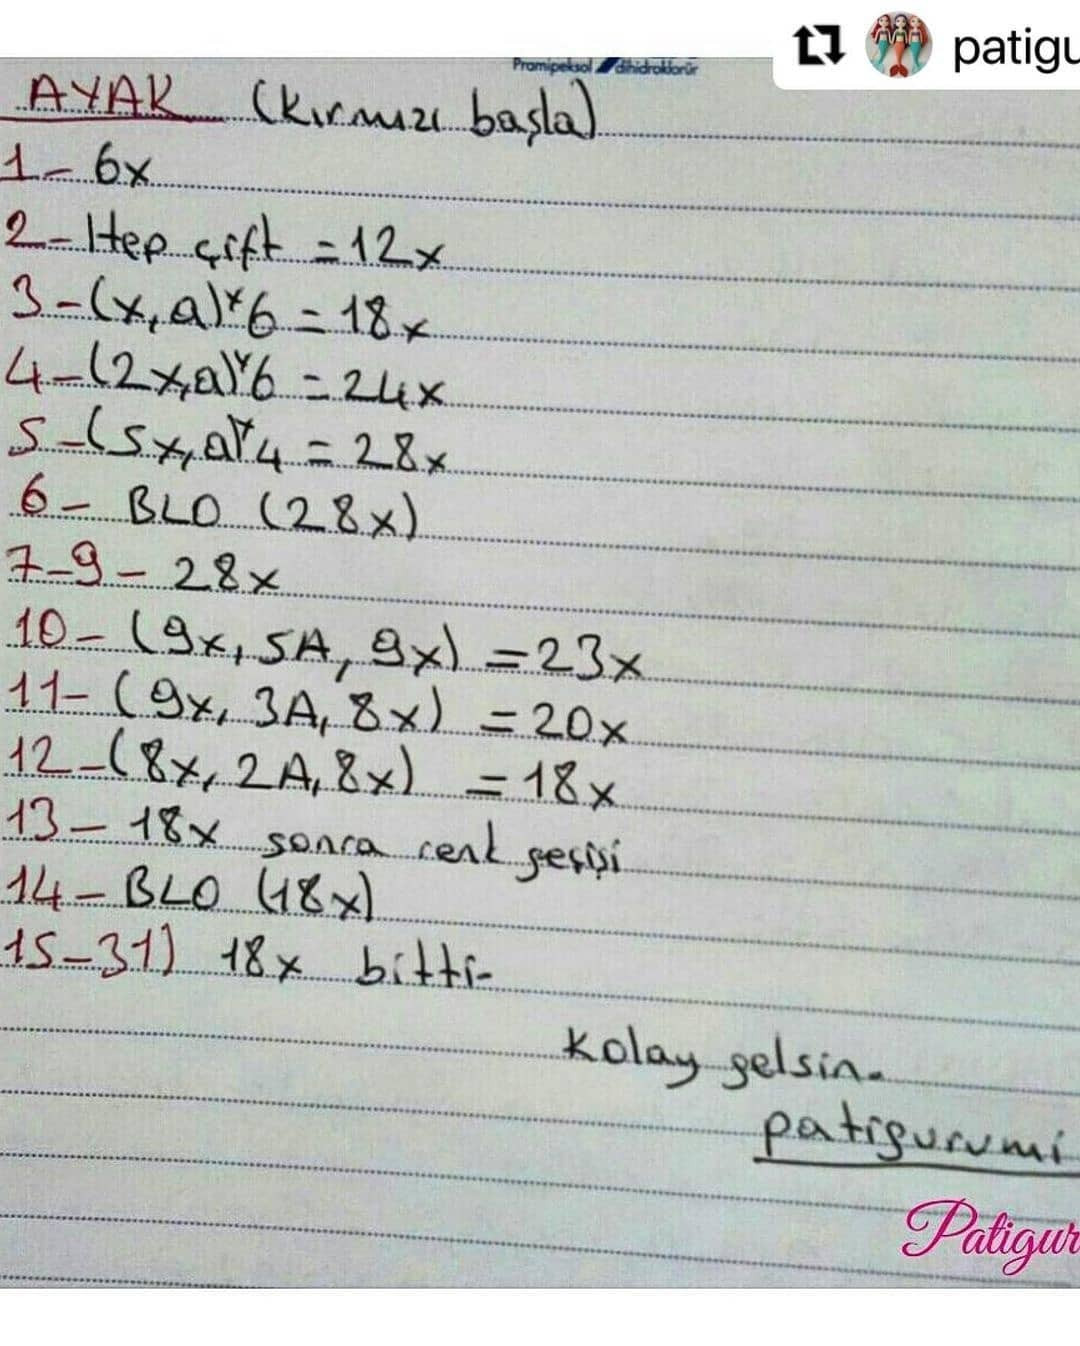 patigu
Pramipeksol dihidroklorür
AYAK (Kırmızı başla)
1- 6x
2- Hep çift = 12x
3-(x,a)*6 = 18x
4-(2x,a)*6 = 24x
5-(5x,a)*4 = 28x
6- BLO (28x)
7-9- 28x
10-(9x, 5A, 9x) = 23x
11-(9x, 3A, 8x) = 20x
12-(8x, 2A, 8x) = 18x
13- 18x sonra renk geçişi
14- BLO (18x)
15-31) 18x bitti-
Kolay gelsin.
patigurumi
Patigur